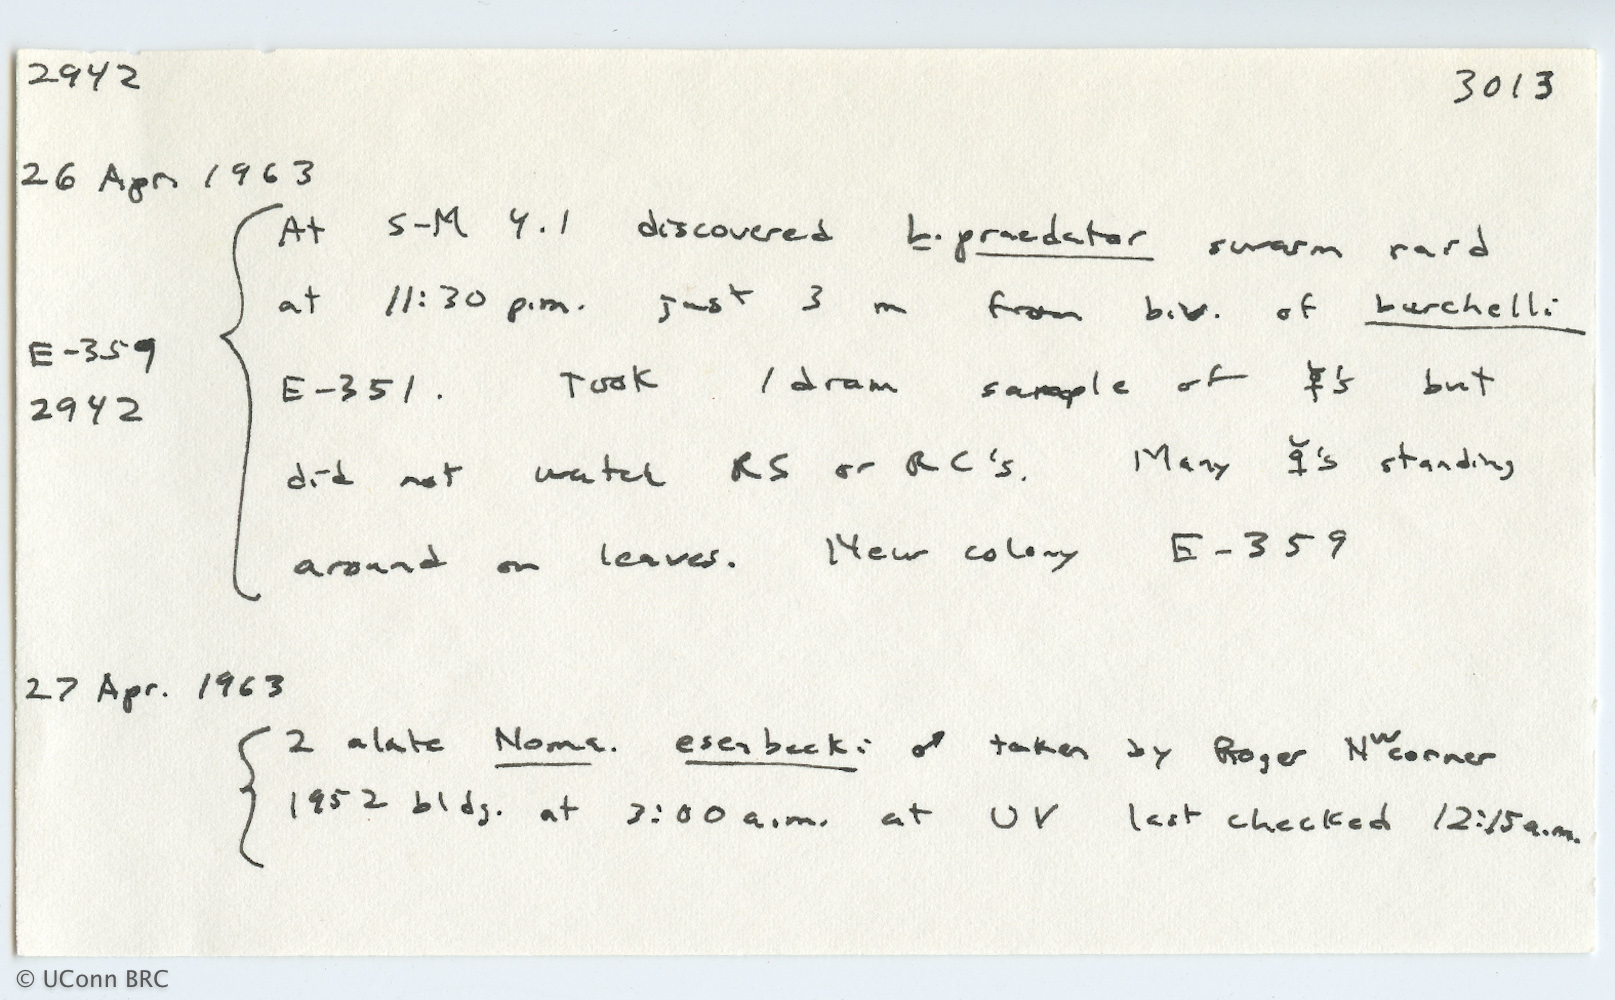 2942 3013
26 Apr. 1963
At S-M 4.1 discovered L. praedator swarm raid
at 11:30 p.m. just 3 m from biv. of burchelli
E-359
E-351. Took 1 dram sample of ☿'s but
2942
did not watch RS or RC's. Many ☿'s standing
around on leaves. New colony E-359
27 Apr. 1963
2 alate Noma. esenbecki ♂ taken by Roger NW corner
1952 bldg. at 3:00 a.m. at UV last checked 12:15 a.m.
© UConn BRC